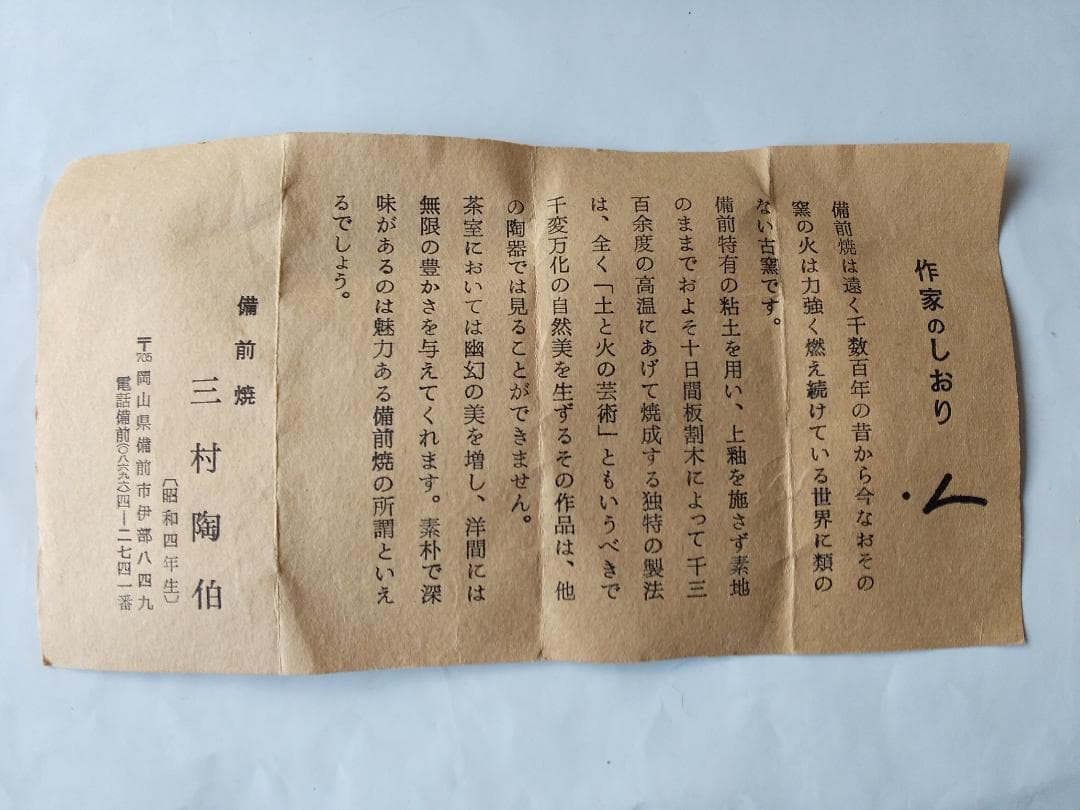 作家のしおり
備前焼は遠く千数百年の昔から今なおその
窯の火は力強く燃え続けている世界に類の
ない古窯です。
備前特有の粘土を用い、上釉を施さず素地
のままでおよそ十日間板割木によって千三
百余度の高温にあげて焼成する独特の製法
は、全く「土と火の芸術」ともいうべきで
千変万化の自然美を生ずるその作品は、他
の陶器では見ることができません。
茶室においては幽幻の美を増し、洋間には
無限の豊かさを与えてくれます。素朴で深
味があるのは魅力ある備前焼の所謂といえ
るでしょう。
備前焼
三村陶伯
(昭和四年生)
〒705岡山県備前市伊部八四九
電話備前(〇八六九六)四―二七四一番